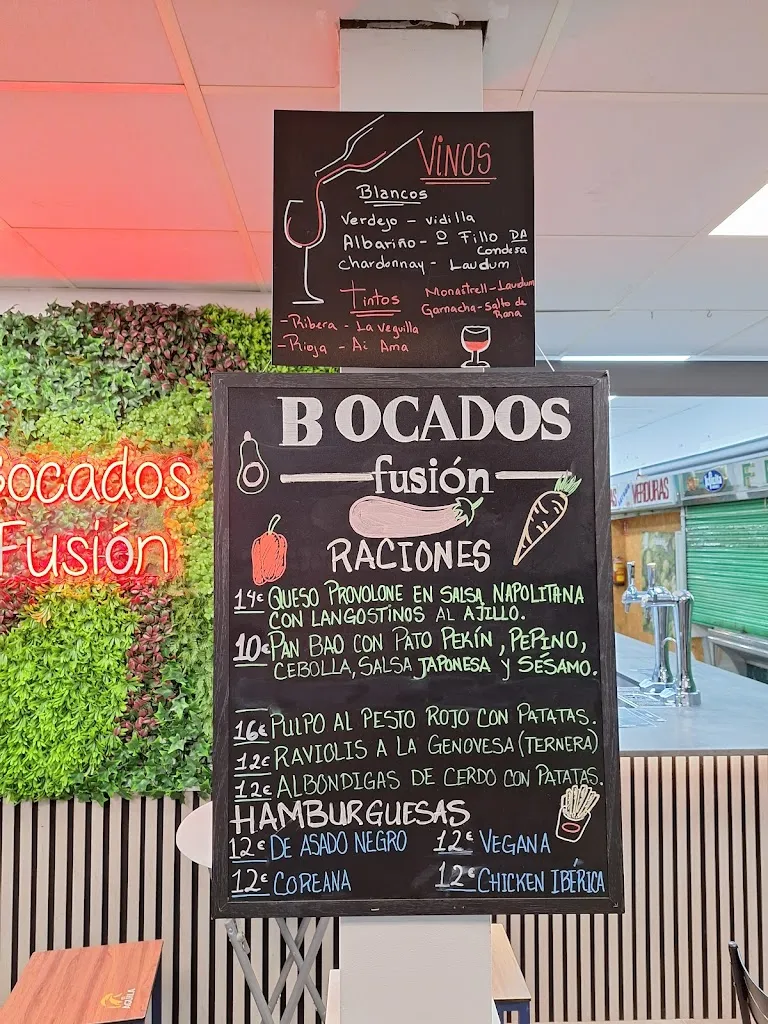 VINOS
Blancos
Verdejo - vidilla
Albariño - O Fillo DA
Condesa
Chardonnay - Laudum
Tintos
Monastrell - Laudum
Garnacha - Salto de
Rana
- Ribera - La Veguilla
- Rioja - Ai Ama
BOCADOS
fusión
RACIONES
14€ QUESO PROVOLONE EN SALSA NAPOLITANA
CON LANGOSTINOS AL AJILLO.
10€ PAN BAO CON PATO PEKÍN, PEPINO,
CEBOLLA, SALSA JAPONESA y SÉSAMO.
16€ PULPO AL PESTO ROJO CON PATATAS.
12€ RAVIOLIS A LA GENOVESA (TERNERA)
12€ ALBÓNDIGAS DE CERDO CON PATATAS.
HAMBURGUESAS
12€ DE ASADO NEGRO 12€ VEGANA
12€ COREANA 12€ CHICKEN IBÉRICA
Bocados
Fusión
VERDURAS
F